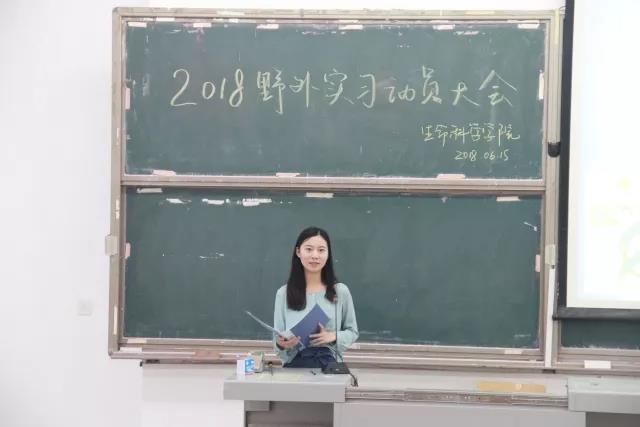 2018野外实习动员大会
生命科学学院
2018.06.15